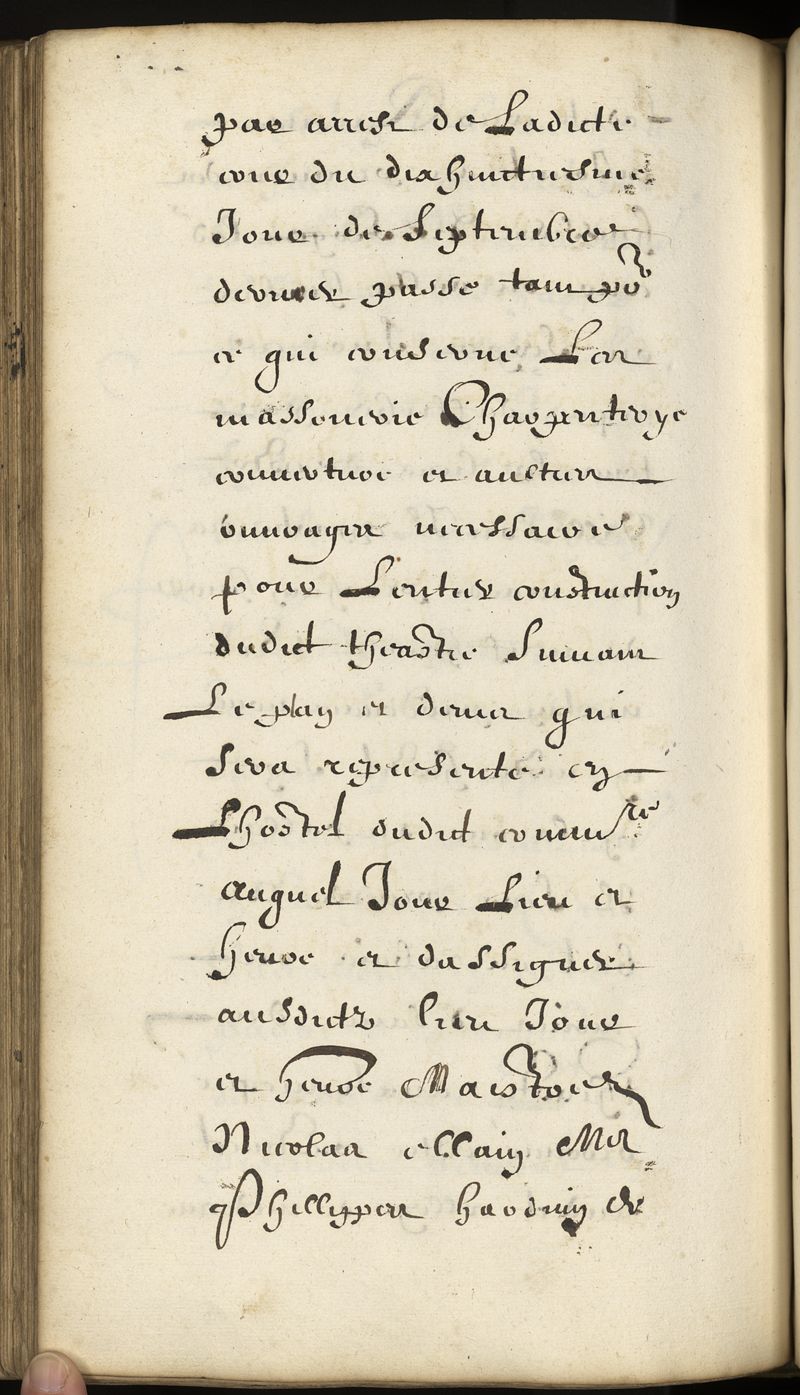 par arrest de Ladicte
cour du dixhuictiesme
Jour de Septembre
dernier passe tant po^r
ce qui conserne Les
massonerie Charpenterye
couverture et aultres
ouuvages necessaire
pour Lentier construction
dudict theastre Suivant
Le plan et devis qui
sera represente en
Lhostel dudict comm^re
auquel Jour Lieu et
heure et dassigner
ausdictz lieu Jour
et heure Maistres
Nicolas ellain M^es
Phillippes harduin de